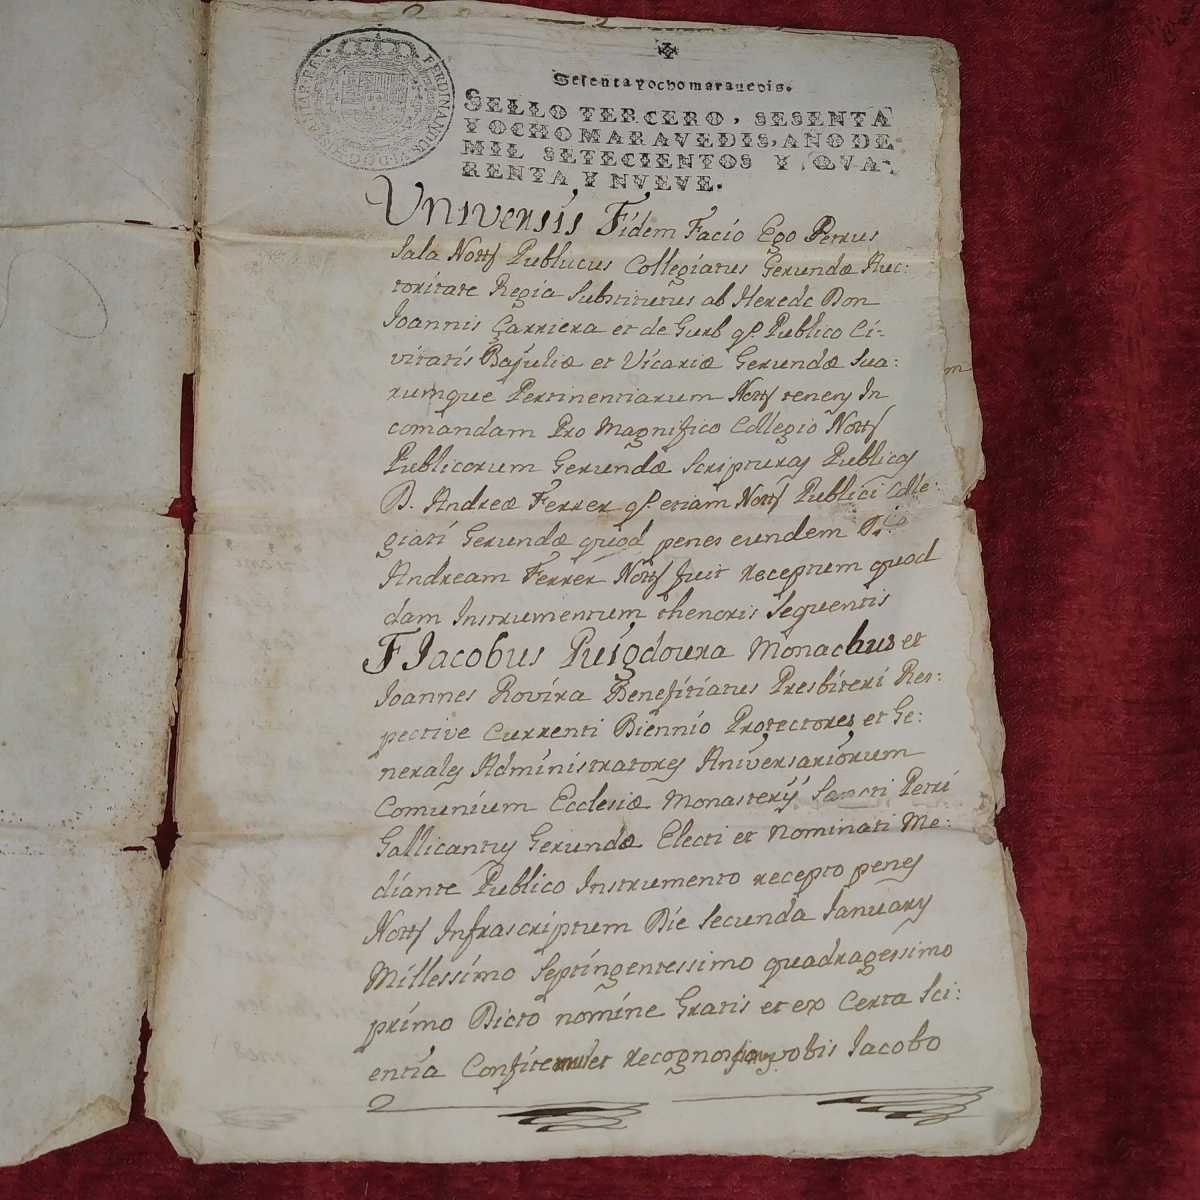 FERDINANDUS VI D G HISPANIAR REX
Sesenta y ocho maravedis.
SELLO TERCERO, SESENTA
Y OCHO MARAVEDIS, AÑO DE
MIL SETECIENTOS Y QVA-
RENTA Y NVEVE.
Universis Fidem Facio Ego Petrus
Sala Notts Publicus Collegiatus Gerundæ Auc:
toritate Regia Substitutus ab Herede Don
Joannis Çarriera et de Gurb qº. Publico Ci-
vitatis Bajuliæ et Vicariæ Gerundæ Sua:
rumque Pertinentiarum Notts tenens In
comandam Pro Magnifico Collegio Notts
Publicorum Gerundæ Scripturas Publicas
D. Andreæ Ferrer qº. etiam Notts Publici Colle:
giati Gerundæ quod penes eundem
Andream Ferrer Notts fuit Receptum quod
dam Instrumentum thenoris Sequentis
F Jacobus Puigdoura Monachus et
Joannes Rovira Benefitiatus Presbiteri Res:
pective Currenti Biennio Protectores et Ge:
nerales Administratores Aniversariorum
Comunium Ecclesiæ Monasterÿ Sancti Petri
Gallicantus Gerundæ Electi et Nominati Me:
diante Publico Instrumento recepto penes
Notts Infrascriptum Die Secunda Januarÿ
Millessimo Septingentessimo quadragessimo
primo Dicto nomine Gratis et ex Certa Sci:
entia Confitemur et Recognoscimus vobis Jacobo
m